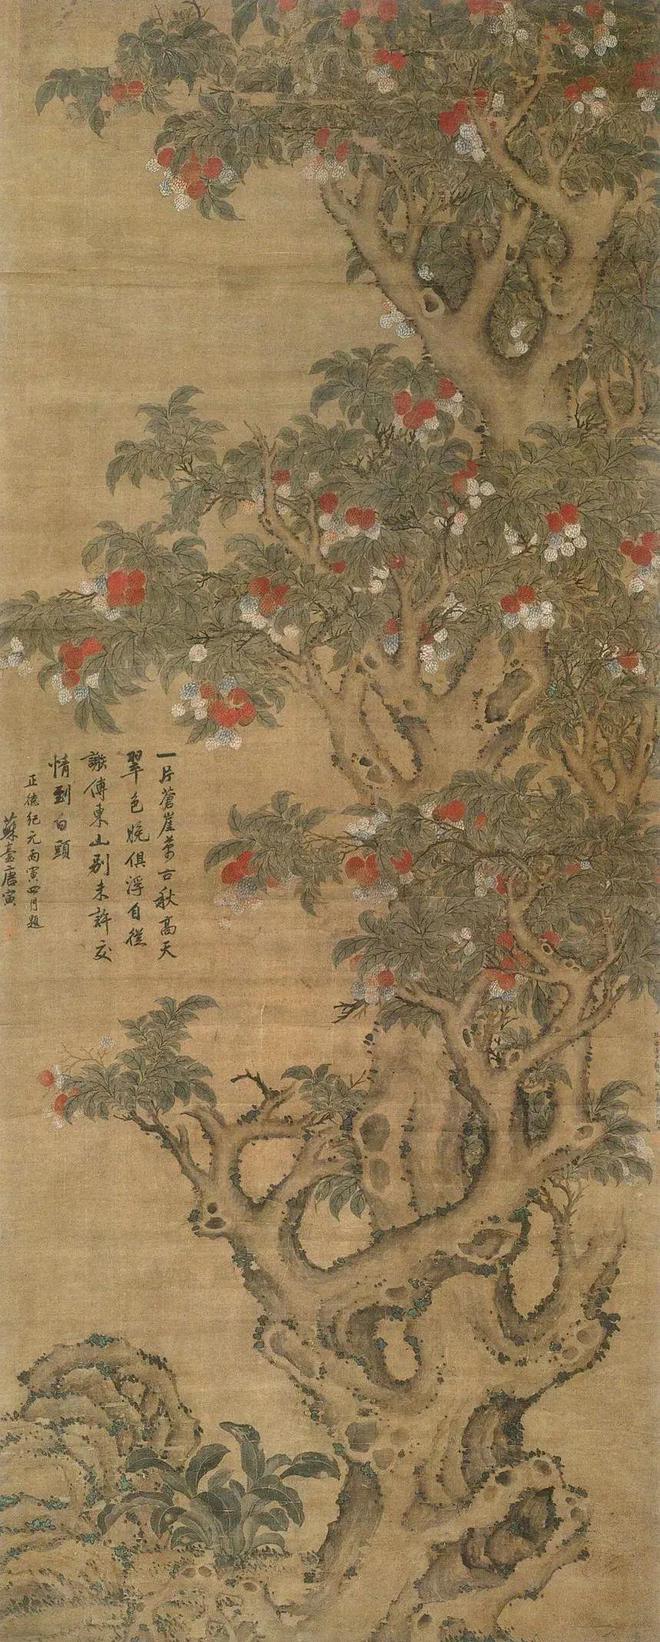 一片蒼崖萬古秋高天
翠色晚俱浮自從
謝傅東山别未許交
情到白頭
正德紀元丙寅四月題
蘇臺唐寅